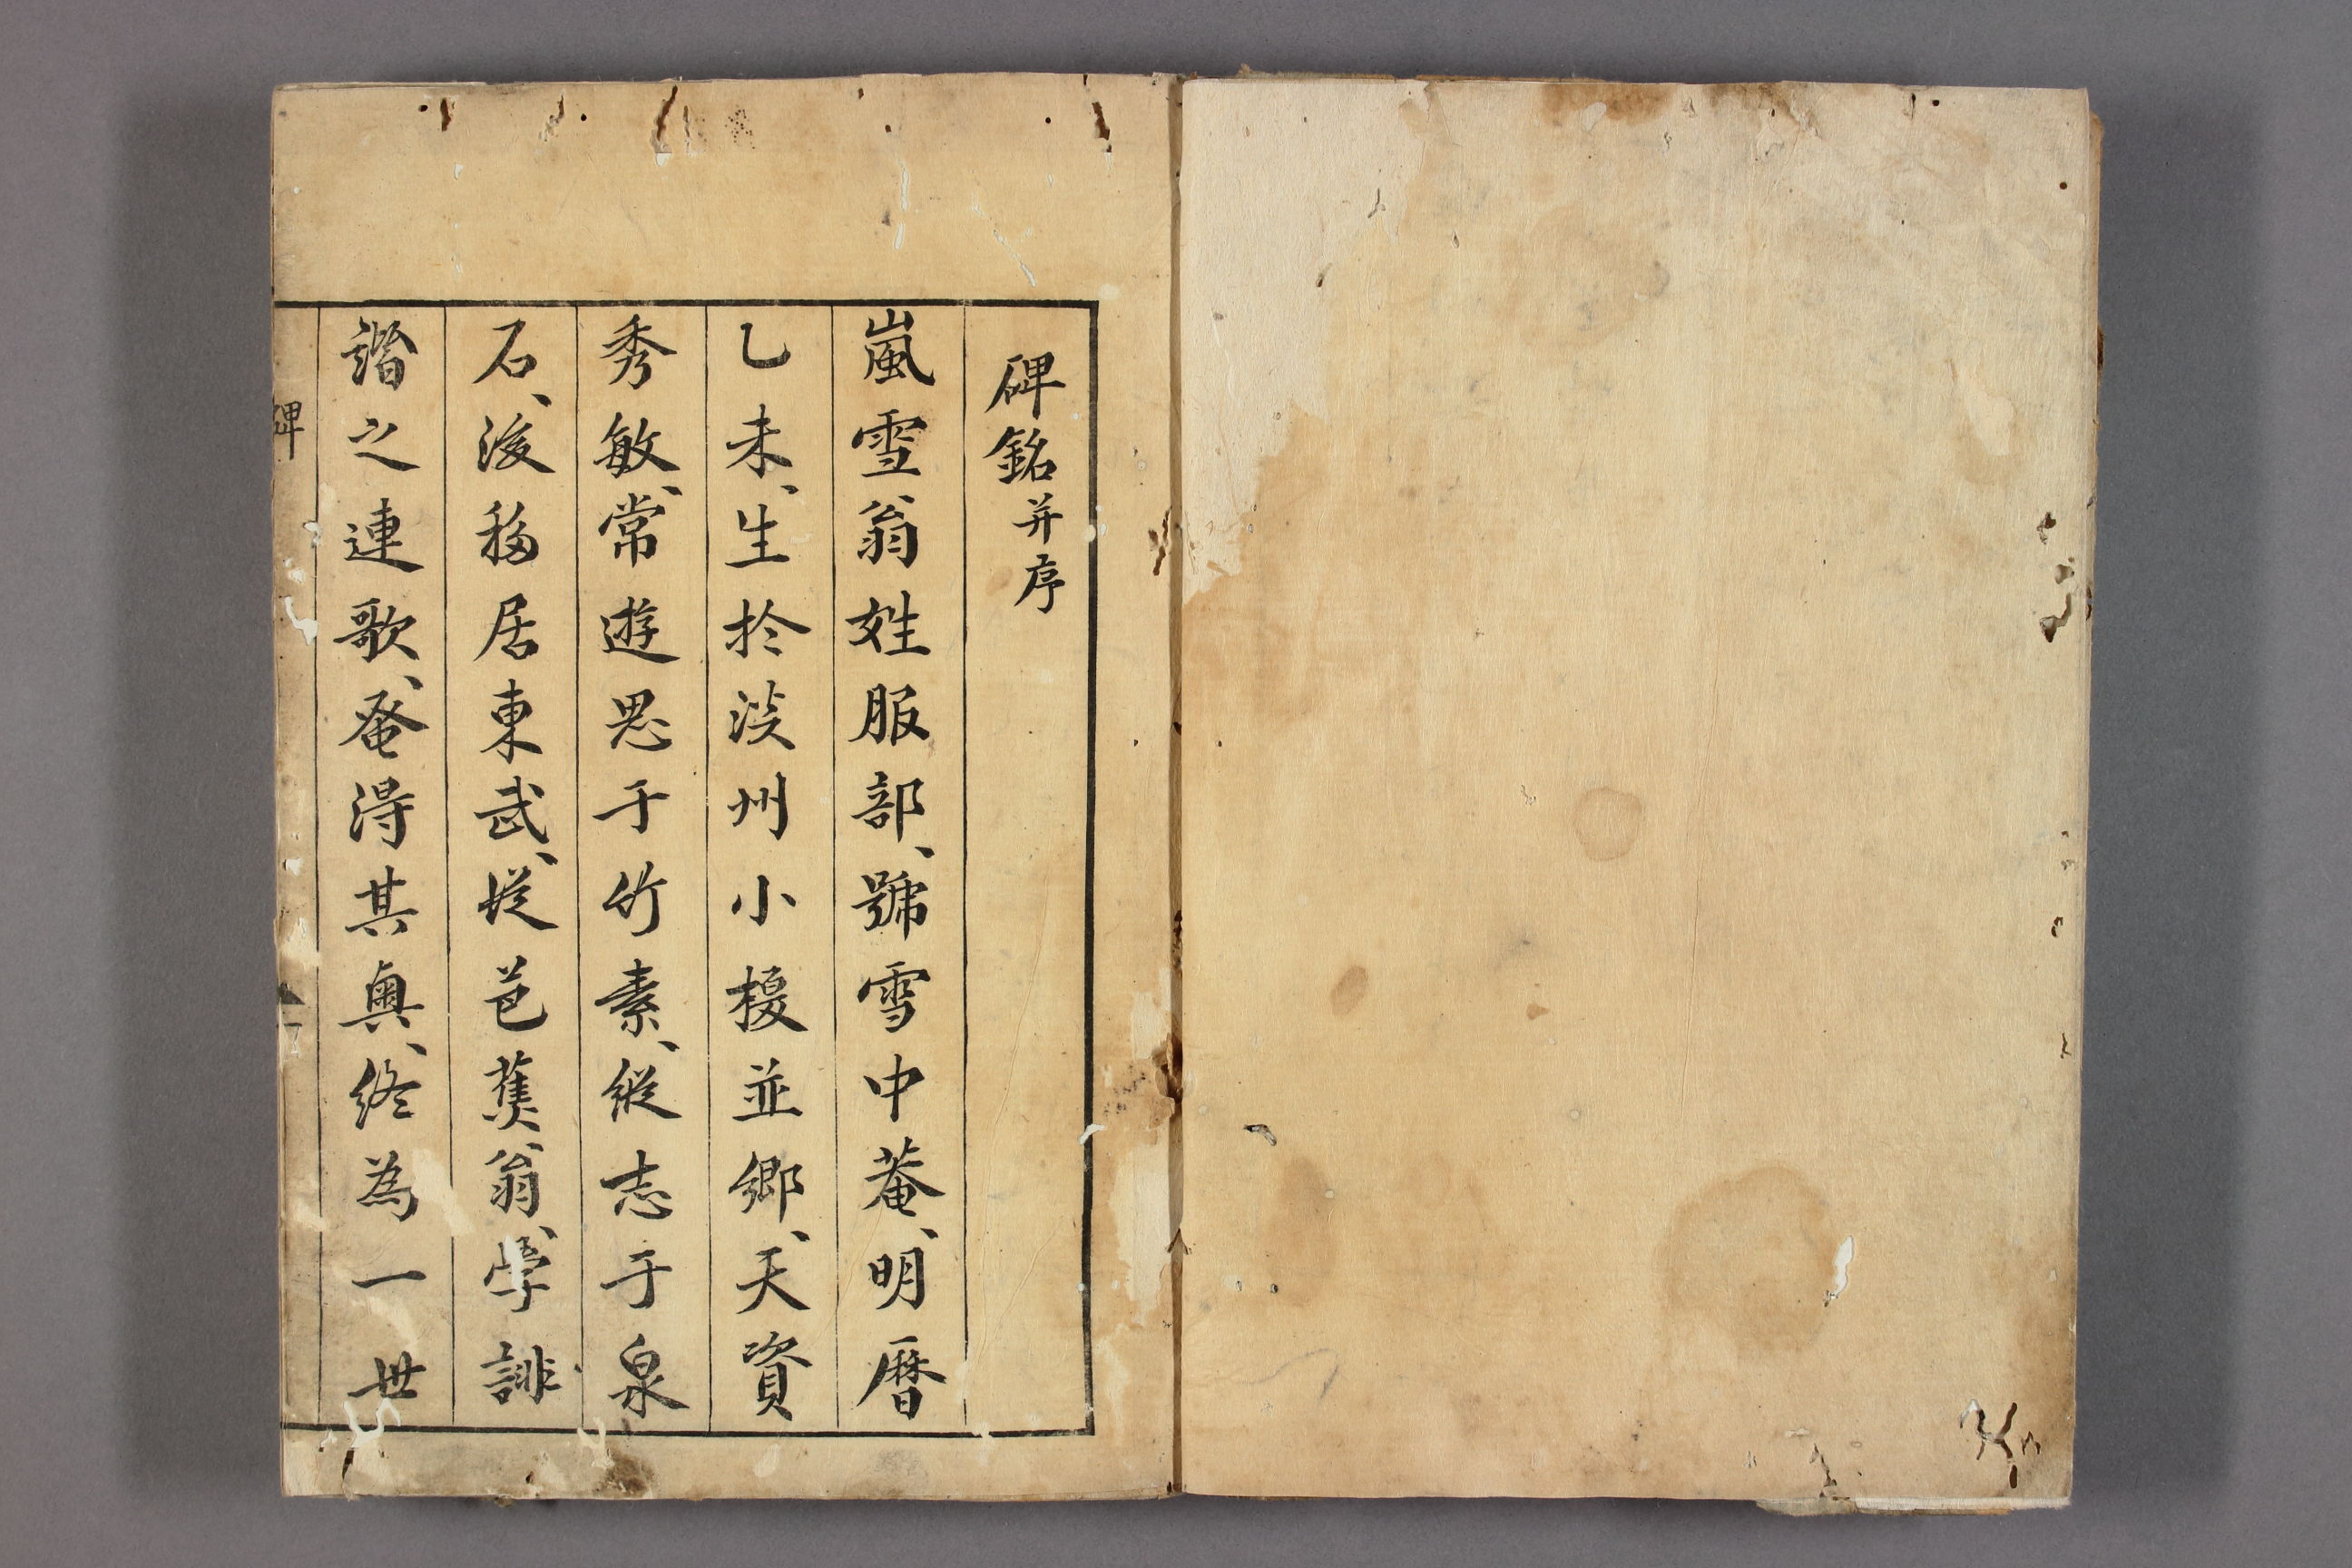 碑銘并序
嵐雪翁姓服部、號雪中菴、明曆
乙未、生於淡州小榎並鄉、天資
秀敏、常遊思于竹素、縱志于泉
石、後移居東武、從芭蕉翁、學誹
諧之連歌、奄得其奧、終為一世
碑